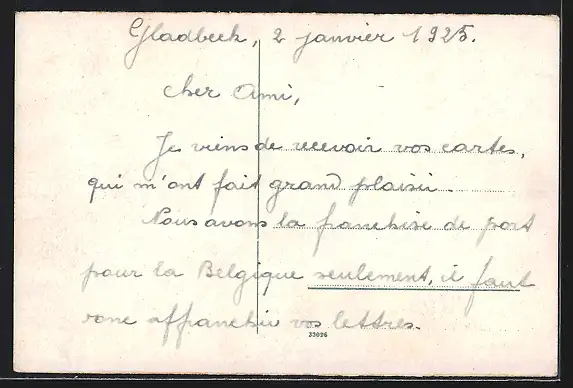 Gladbeck, 2 janvier 1925.
cher Ami,
Je viens de recevoir vos cartes,
qui m'ont fait grand plaisir.
Nous avons la franchise de port
pour la Belgique seulement, il faut
donc affranchir vos lettres.
33026